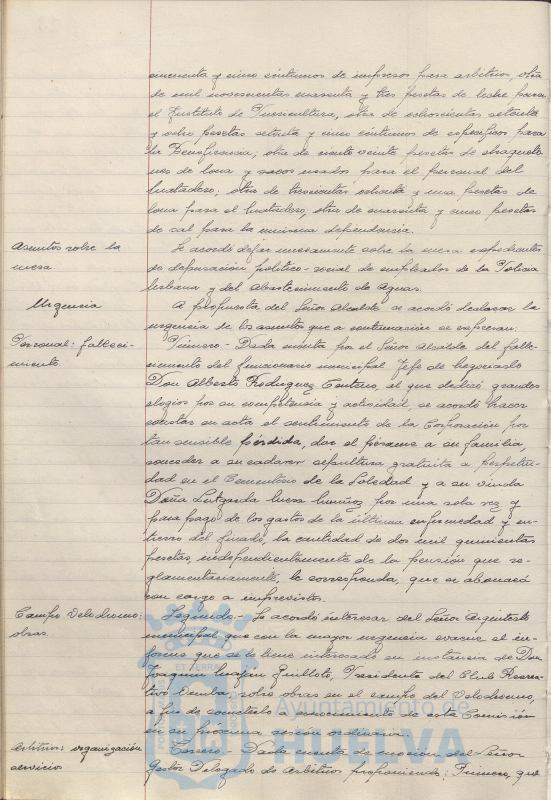 cincuenta y cinco céntimos de impresos para arbitrios, otra
de mil novecientas cuarenta y tres pesetas de leche para
el Instituto de Puericultura, otra de ochocientas setenta
y ocho pesetas setenta y cinco céntimos de específicos para
la Beneficencia; otra de ciento veinte pesetas de
nes de lona y sacos usados para el personal del
Matadero; otra de trescientas ochenta y una pesetas de
lona para el Matadero, otra de cuarenta y cinco pesetas
de sal para la misma dependencia.
Asuntos sobre la
mesa
Se acordó dejar nuevamente sobre la mesa expedientes
de depuración político-social de empleados de la Policía
Urbana y del Abastecimiento de Aguas.
Urgencia
A propuesta del Señor Alcalde se acordó declarar la
urgencia de los asuntos que a continuación se expresan:
Personal: falleci-
miento.
Primero - Dada cuenta por el Señor Alcalde del falle-
cimiento del funcionario municipal Jefe de Negociado
Don Alberto Rodriguez Centeno, al que dedicó grandes
elogios por su competencia y actividad, se acordó hacer
constar en acta el sentimiento de la Corporación por
tan sensible pérdida, dar el pésame a su familia,
conceder a su cadáver sepultura gratuita a perpetui-
dad en el Cementerio de la Soledad y a su viuda
Doña Lutgarda por una sola vez y
para pago de los gastos de la última enfermedad y en-
tierro del finado, la cantidad de dos mil quinientas
pesetas, independientemente de la pensión que re-
glamentariamente le corresponda, que se abonará
con cargo a imprevistos.
Campo Velodromo:
obras.
Segundo.- Se acordó interesar del Señor Arquitecto
municipal que con la mayor urgencia evacúe el in-
forme que se le tiene interesado en instancia de Don
Joaquin Quilloto, Presidente del Club Recrea-
tivo Onuba, sobre obras en el campo del Velodromo,
a fin de someterlo a conocimiento de esta Comisión
en su próxima sesión ordinaria.
Arbitrios: organización
servicios
Tercero - Dada cuenta de moción del Señor
Gestor Delegado de Arbitrios proponiendo: Primero, que
ET TERRA
Ayuntamiento de
HUELVA